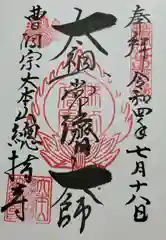 奉拝 令和四年七月十八日
太祖常済大師
曹洞宗大本山總持寺